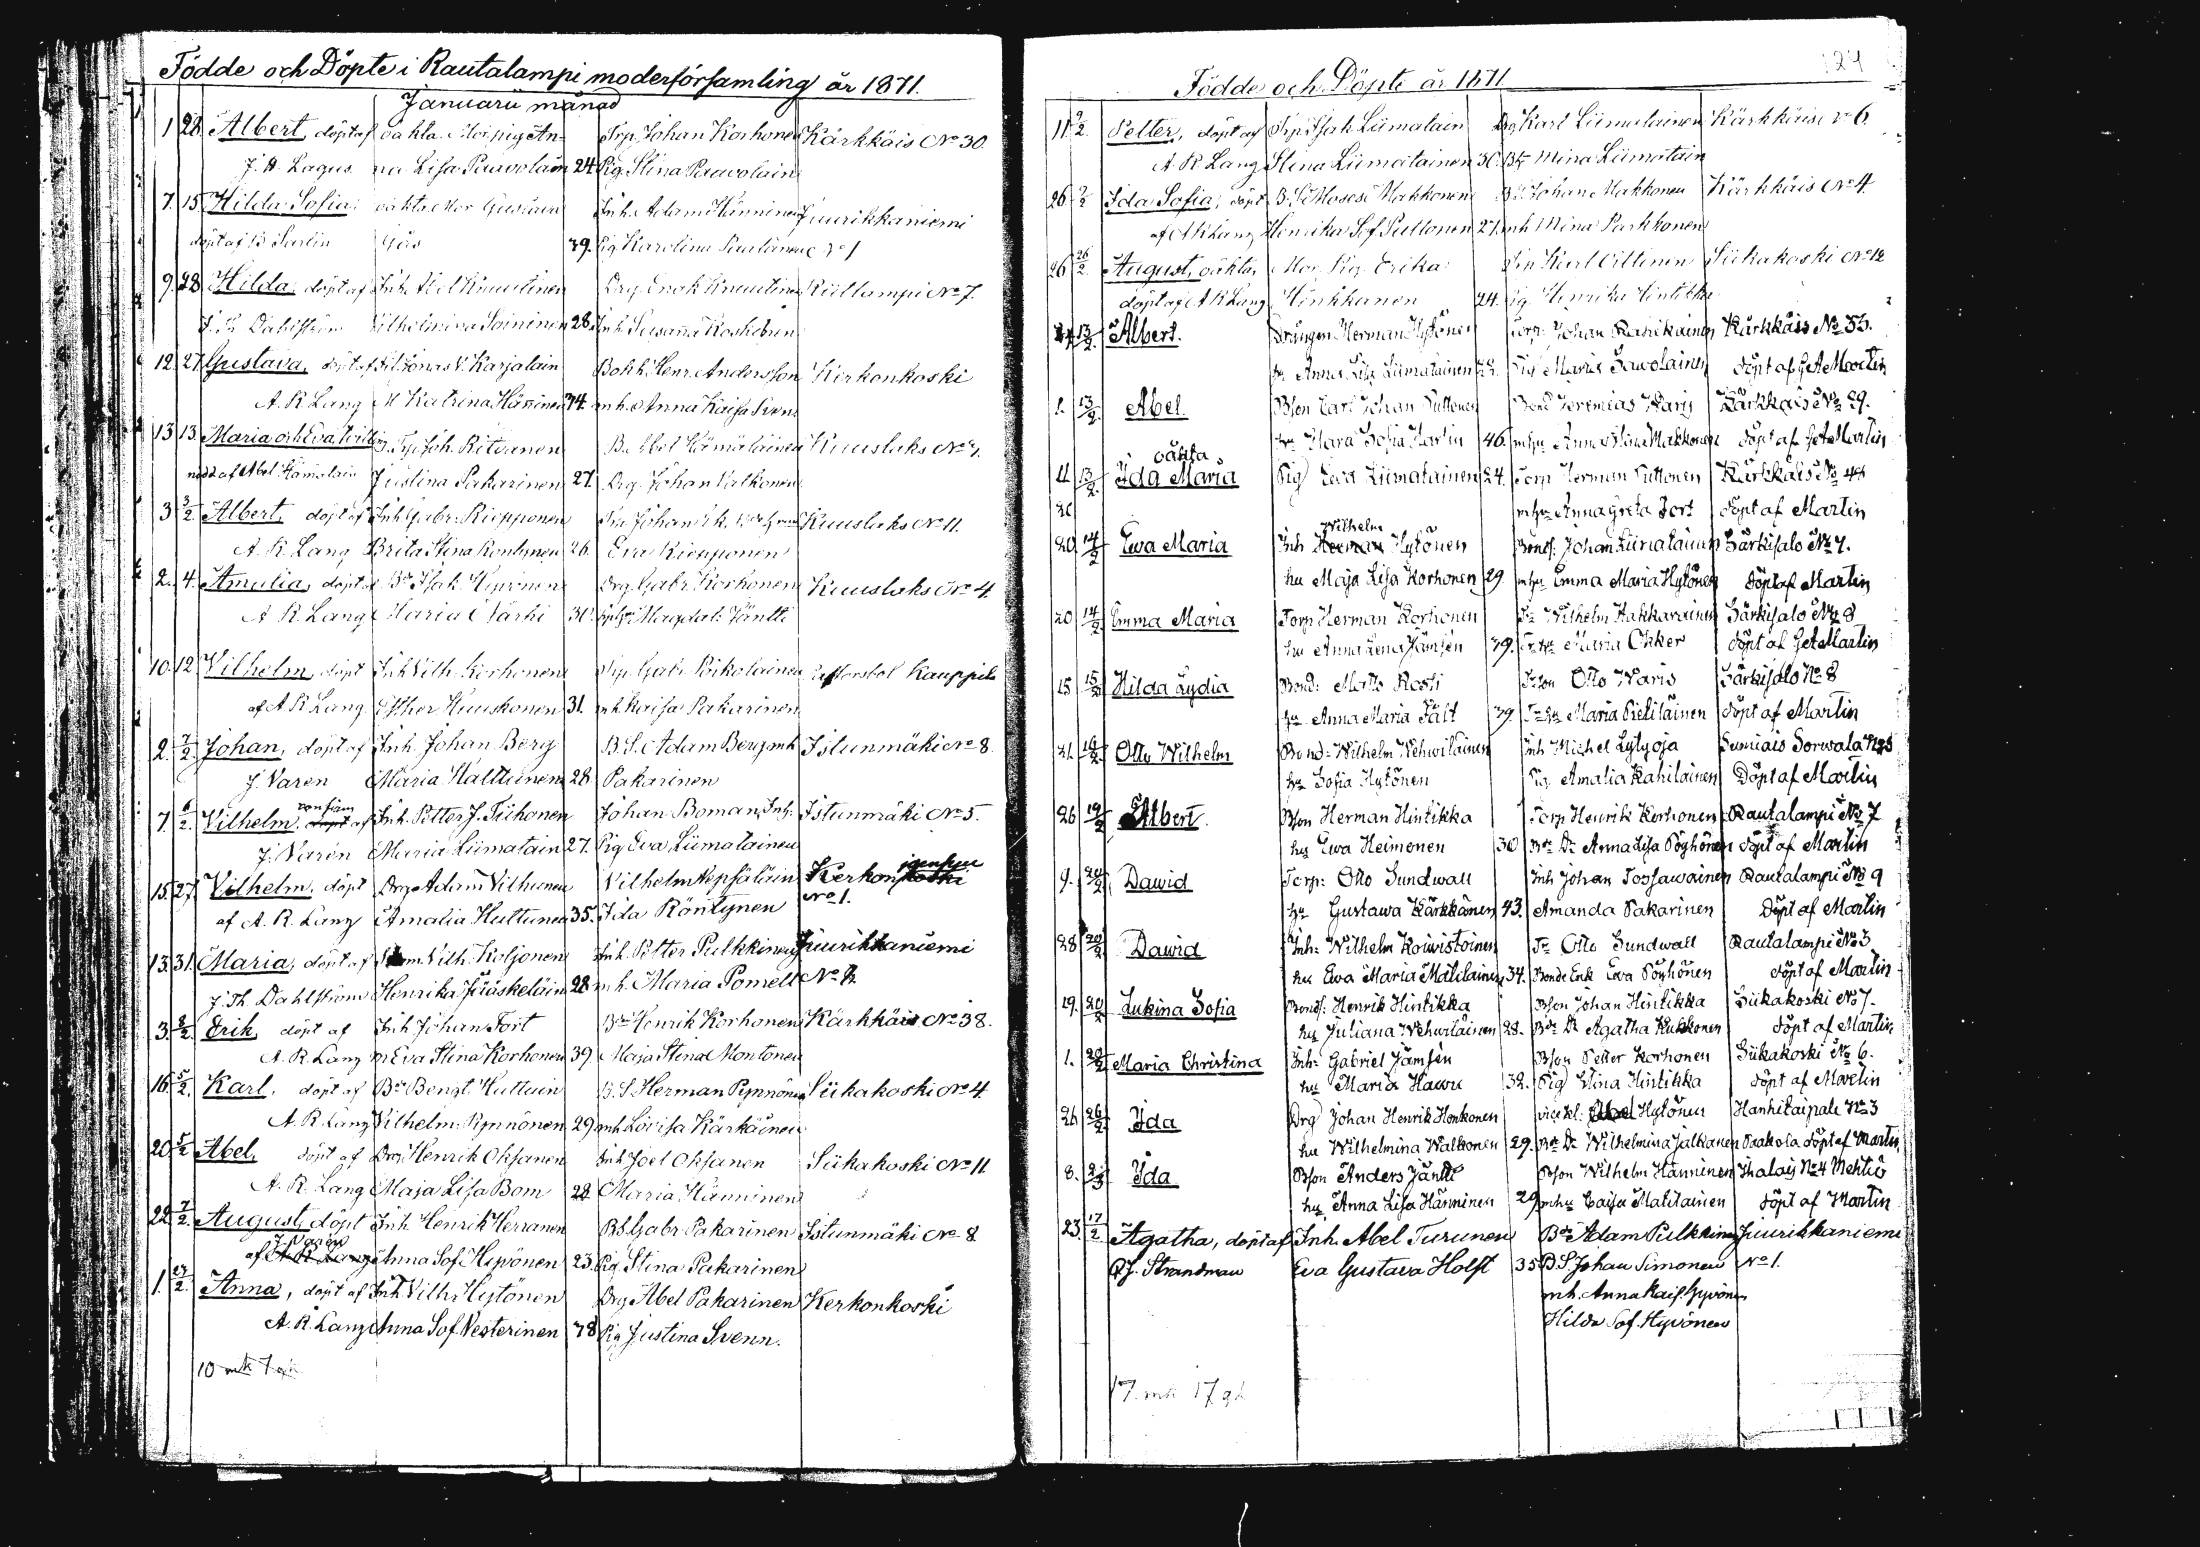 Födde och Döpte i Rautalampi moderförsamling år 1871.
Januarii månad
1 28 Albert, döpt af oäkta Mor pig An- Trp. Johan Korhonen Kärkkäis No 30
J. A. Lagus na Lisa Paavolain 24 Pig Stina Paavolain
7. 15 Hilda Sofia, oäkta Mor Gustava Inh. Adam Hänninen Juurikkaniemi
döpt af Sarlin 39. Pig Karolina No 1
9. 28 Hilda, döpt af Inh. Abel Knuutinen Drg Enok Knuutinen Kiillampi No 7.
Dahlström Vilhelmina Soininen 28. Inh Susanna Koskelain
12. 27 Gustava, döpt af Jonas V. Karjalain Bokh. Henr. Andersson Kerkonkoski
A. R. Lang M Katrina Hänninen 44. mh. Anna Kaisa Sven
13 13 Maria och Eva, tvilling Trp. Joh. Ritvanen B. Abel Hämäläinen Kuuslaks No 4.
nödd. af Abel Hämälain Justina Pakarinen 27. Drg. Johan Valkonen
3 3/2 Albert, döpt af Inh Gabr. Riepponen Johan Kuuslaks No 11.
A. R. Lang Brita Stina Rontynen 26. Eva Riepponen
2. 4. Amalia, döpt af Bd Isak Hyvönen Drg. Gabr. Korhonen Kuuslaks No 4
A. R. Lang Maria Närhi 30. Magdal. Jäntti
10. 12 Vilhelm, döpt Inh Vilh. Korhonen Trp. Gabr. Poikolainen Kauppila
af A. R. Lang Esther Huuskonen 31. mh. Kaisa Pakarinen
2. 7/2. Johan, döpt af Inh. Johan Berg B. S. Adam Berg mh Istunmäki No 8.
J. Varen Maria Halttunen 28 Pakarinen
7. 6/2. Vilhelm, confirm af Inh. Petter J. Tiihonen Johan Boman, Inh. Istunmäki No 5.
J. Varén Maria Liimatain 27. Pig Eva Liimatainen
15. 27. Vilhelm, döpt Drg Adam Vilhunen Vilhelm Kerkonjoensuu
af A. R. Lang Amalia Huttunen 35. Ida Röntynen No 1.
13. 31. Maria, döpt af Vilh. Koljonen Inh. Petter Pulkkinen Juurikkaniemi
J. Th. Dahlström Henrika Jääskeläin 28 mh. Maria Pomell No 2.
3. 8/2. Erik, döpt af Inh Johan Tört Bd Henrik Korhonen Kärkkäis No 38.
A. R. Lang m Eva Stina Korhonen 39. Maja Stina Montonen
16 5/2. Karl, döpt af Bd Bengt Huttuin B. S. Herman Pynnönen Siikakoski No 4
A. R. Lang Vilhelm. Pynnönen 29 mh Lovisa Kärkäinen
20 5/2 Abel, döpt af Drg Henrik Oksanen Inh Joel Oksanen Siikakoski No 11
A. R. Lang Maja Lisa Bom 28 Maria Hänninen
22 7/2. August, döpt Inh. Henrik Herranen B. S. Gabr. Pakarinen Istunmäki No 8
af J Varén Anna Sof. Hyvönen 23. Pig Stina Pakarinen
1. 27/2. Anna, döpt af Inh Vilh. Hytönen Drg Abel Pakarinen Kerkonkoski
A. R. Lang Anna Sof. Vesterinen 38 Pig Justina Svenn.
10 mk 7 qk
Födde och Döpte år 1871
124
11. 9/2 Petter, döpt af Trp. Isak Liimatain Drg Karl Liimatainen Kärkkäis No 6
A. R. Lang Stina Liimatainen 30. Mina Liimatain
26 9/2 Ida Sofia, döpt B. S. Moses Makkonen B. S. Johan Makkonen Kärkkäis No 4.
af A R Lang Henrika Sof. Puttonen 27. mh Mina Parkkonen
26 26/2 August, oäkta, Mor Pig. Erika Karl Siikakoski No 12
döpt af A R Lang Hinkkanen 24. Pig. Henrika Hintikka
13/2. Albert. Drängen Herman Hytönen Torp: Johan Kahikainen Kärkkäis No 53.
hu Anna Lisa Liimatainen 29. Pig Maria Sawolainen döpt af G A Martin
1. 13/2. Abel. Bson Carl Johan Puttonen Bond Jeremias Waris Kärkkäis No 29.
hu Klara Sofia Martin 46. mhu Anna Stina Makkonen döpt af G A Martin
oäkta
11 13/2. Ida Maria Pig Eva Liimatainen 24. Torp Herman Puttonen Kärkkäis No 44
mhu Anna Greta Tört döpt af Martin
20 14/2 Ewa Maria Inh Wilhelm Hytönen Bonds. Johan Liimatainen Särkisalo No 4.
hu Maja Lisa Korhonen 29 mhu Emma Maria Hytönen döpt af Martin
20 14/2 Emma Maria Torp Herman Korhonen Wilhelm Hakkarainen Särkisalo No 8
hu Anna Lena Jämsén 39. Maria Ohker döpt af G A Martin
15 15/2 Hilda Lydia Bond: Matts Rossi Tson Otto Waris Särkisalo No 8
hu Anna Maria Fält 39 Maria Pietiläinen döpt af Martin
21. 16/2 Otto Wilhelm Bond: Wilhelm Wehwiläinen Inh Michel Lylyoja Sumiais Sorwala No 5
hu Sofia Hytönen Pig Amalia Kahilainen Döpt af Martin
26 19/2 Albert. Bson Herman Hintikka Torp Henrik Korhonen Rautalampi No 7
hu Ewa Heimonen 30 Bdr Dr Anna Lisa Pöyhönen döpt af Martin
9. 20/2 Dawid Torp: Otto Sundwall Inh Johan Tossawainen Rautalampi No 9
hu Gustawa Kärkkänen 43. Amanda Pakarinen Döpt af Martin
28 20/2 Dawid Inh: Wilhelm Koiwistoinen Otto Sundwall Rautalampi No 3
hu Ewa Maria Matilainen 34. Bonde Enk Ewa Pöyhönen döpt af Martin
19. 20/2 Lukina Sofia Bonds: Henrik Hintikka Bson Johan Hintikka Siikakoski No 7.
hu Juliana Wehwiläinen 28. Bdr Dr Agatha Kukkonen döpt af Martin
1. 20/2 Maria Christina Inh: Gabriel Jämsén Bson Petter Korhonen Siikakoski No 6.
hu Maria Hawu 32. Pig Stina Hintikka döpt af Martin
26 26/2 Ida Drg Johan Henrik Honkonen Hytönen Hanhitaipale No 3
hu Wilhelmina Walkonen 29. Bdr Dr Wilhelmina Jalkanen Paakola döpt af Martin
8. 2/3 Ida Bson Anders Jäntti Bson Wilhelm Hänninen No 4 Mehtiö
hu Anna Lisa Hänninen 29 mhu Caisa Matilainen döpt af Martin
23. 17/2 Agatha, döpt af Inh. Abel Turunen Bd Adam Pulkkinen Juurikkaniemi
Q. J. Strandman Eva Gustava Holst 35 B. S. Johan Simonen No 1.
mh. Anna Kais. Hyvönen
Hilda Sof. Hyvönen
17. mk 17 qk